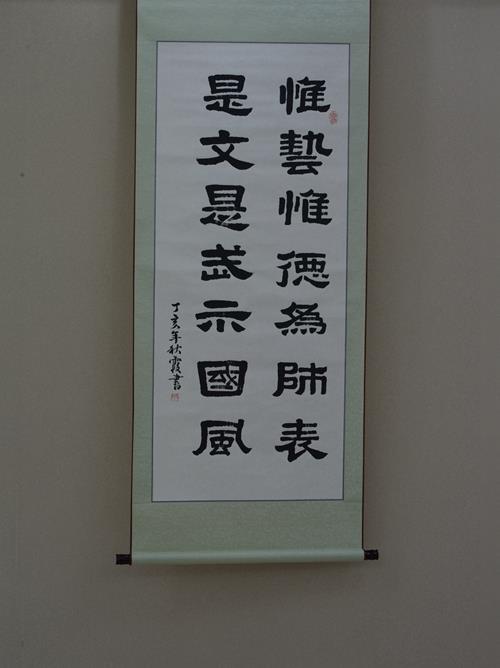 惟藝惟德為師表
是文是武示國風
丁亥年秋霞書